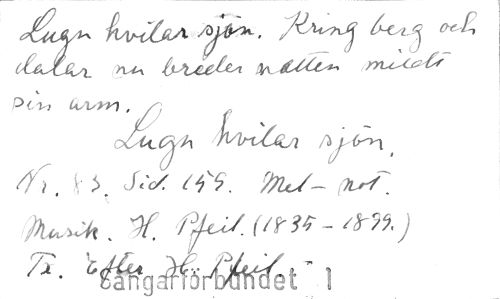 Lugn hvilar sjön. Kring berg och
dalar nu breder natten mildt
sin arm.
Lugn hvilar sjön.
Nr. 83. Sid. 159. Mel-not.
Musik. H. Pfeil. (1835-1899.)
Tx. Efter H. Pfeil.
Sångarförbundet 1